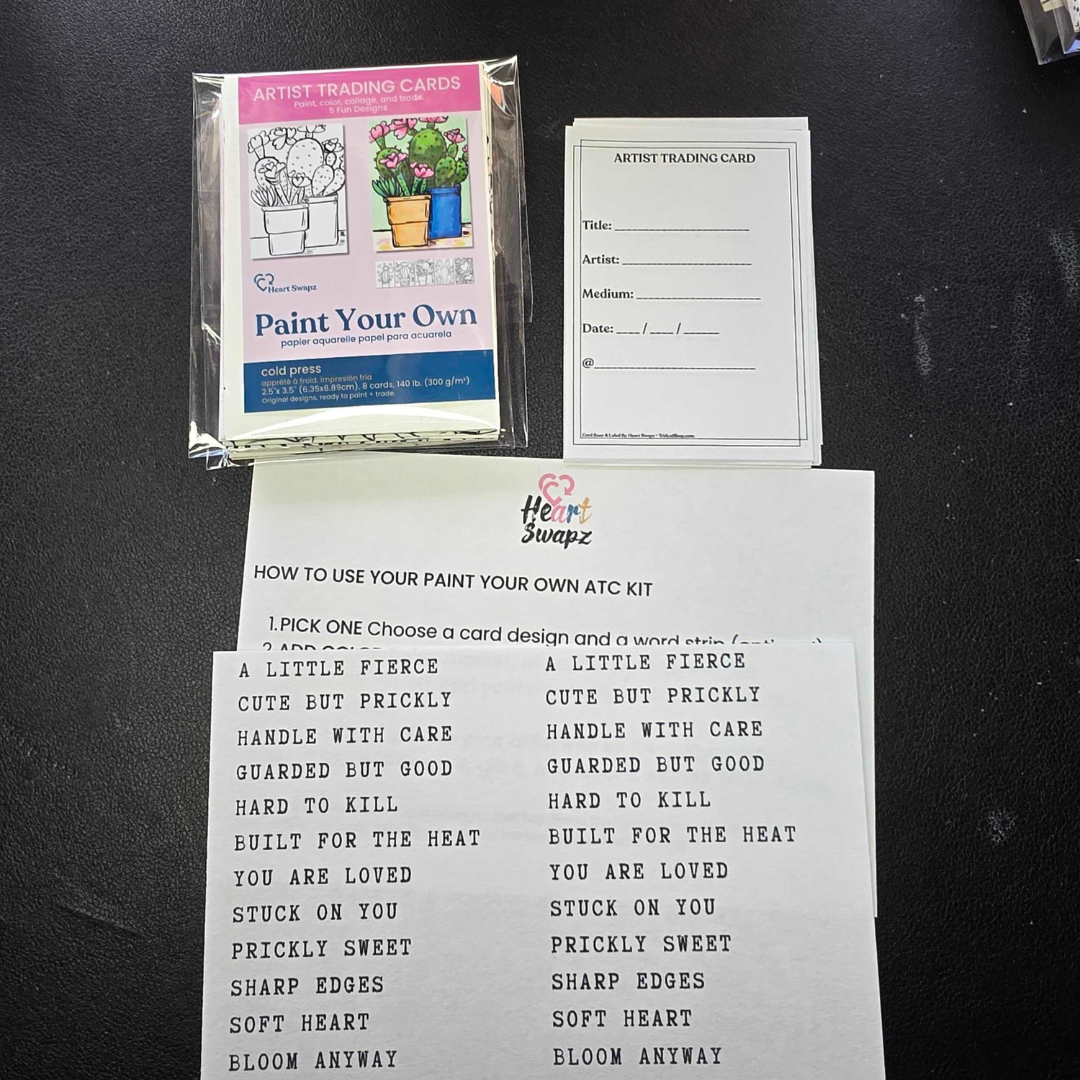 ARTIST TRADING CARDS
Paint, color, collage, and trade.
5 Fun Designs
Heart Swapz
Paint Your Own
papier aquarelle papel para acuarela
cold press
apprêté à froid. impresión fría
2.5"x 3.5" (6.35x8.89cm), 8 cards, 140 lb. (300 g/m²)
Original designs, ready to paint + trade.
ARTIST TRADING CARD
Title: ____________________
Artist: ____________________
Medium: ____________________
Date: ____ / ____ / ______
@____________________
Card Base & Label By Heart Swapz •
Heart
Swapz
HOW TO USE YOUR PAINT YOUR OWN ATC KIT
1. PICK ONE Choose a card design and a word strip
2. ADD COLOR
A LITTLE FIERCE A LITTLE FIERCE
CUTE BUT PRICKLY CUTE BUT PRICKLY
HANDLE WITH CARE HANDLE WITH CARE
GUARDED BUT GOOD GUARDED BUT GOOD
HARD TO KILL HARD TO KILL
BUILT FOR THE HEAT BUILT FOR THE HEAT
YOU ARE LOVED YOU ARE LOVED
STUCK ON YOU STUCK ON YOU
PRICKLY SWEET PRICKLY SWEET
SHARP EDGES SHARP EDGES
SOFT HEART SOFT HEART
BLOOM ANYWAY BLOOM ANYWAY